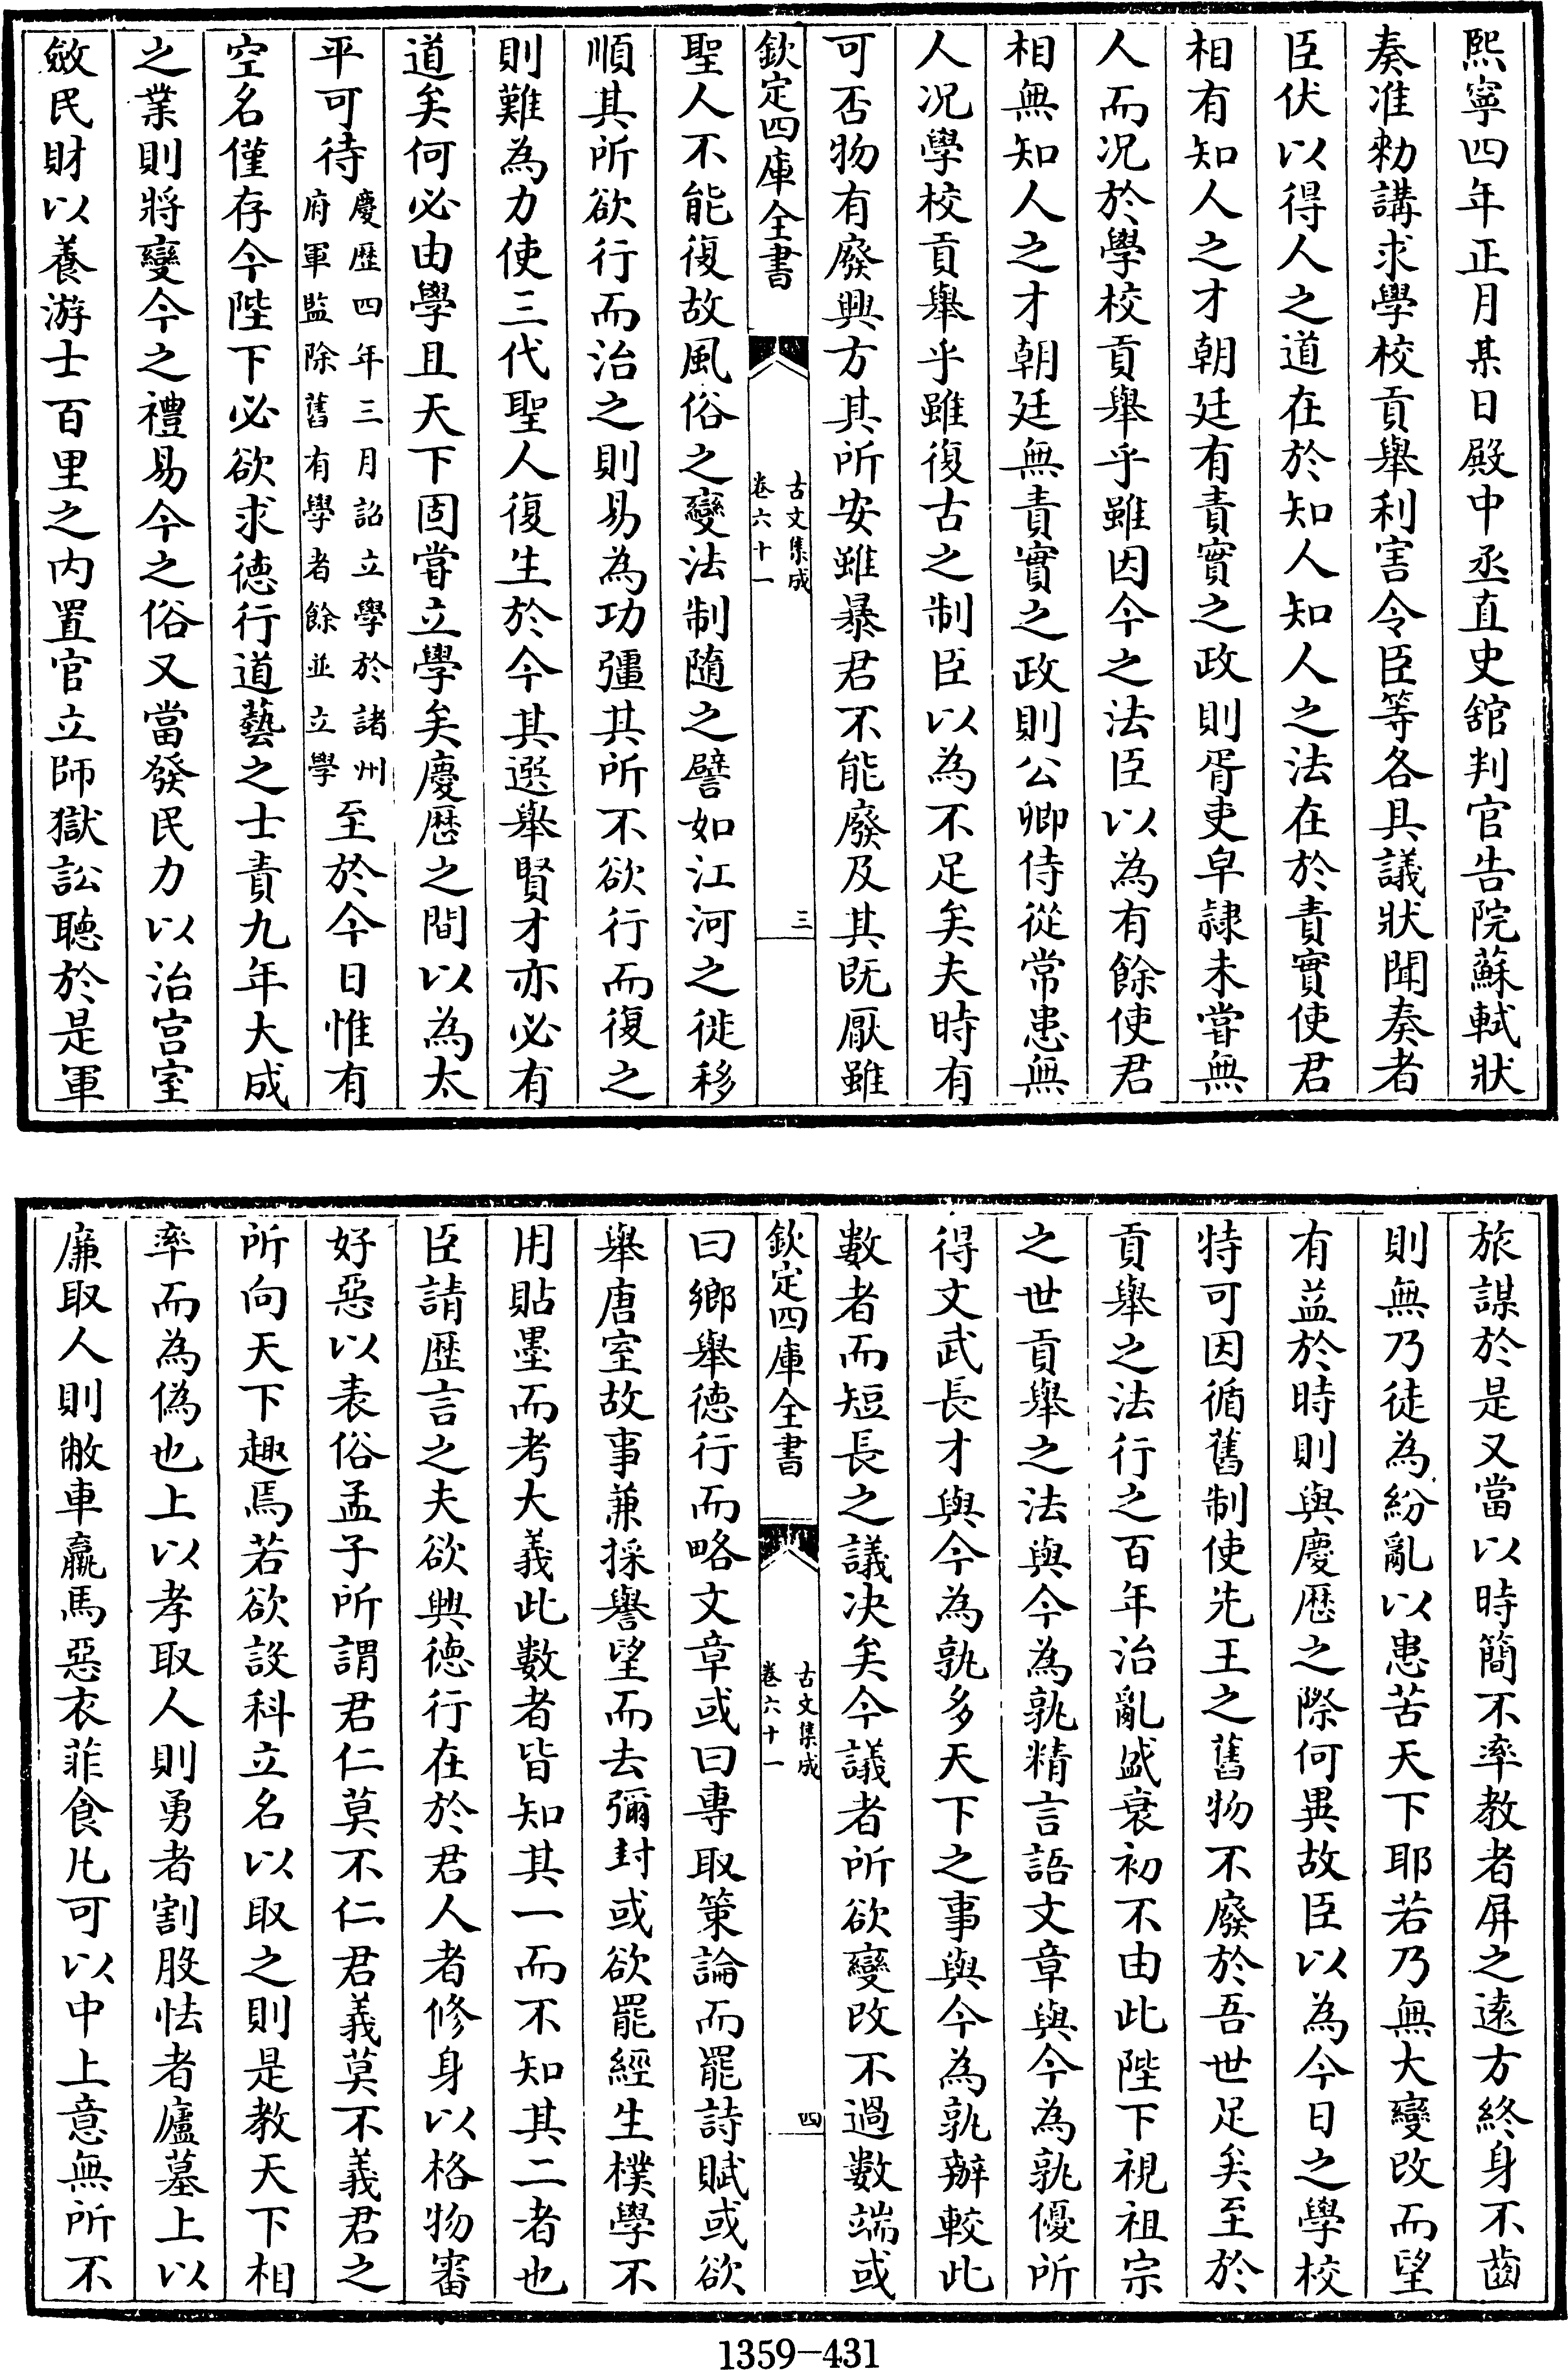 熙寧四年正月某日殿中丞直史舘判官告院蘇軾狀
奏准勑講求學校貢舉利害令臣等各具議狀聞奏者
臣伏以得人之道在於知人知人之法在於責實使君
相有知人之才朝廷有責實之政則胥吏皁隷未嘗無
人而况於學校貢舉乎雖因今之法臣以為有餘使君
相無知人之才朝廷無責實之政則公卿侍從常患無
人况學校貢舉乎雖復古之制臣以為不足矣夫時有
可否物有廢興方其所安雖暴君不能廢及其既厭雖
欽定四庫全書
古文集成
卷六十一
三
聖人不能復故風俗之變法制隨之譬如江河之徙移
順其所欲行而治之則易為功彊其所不欲行而復之
則難為力使三代聖人復生於今其選舉賢才亦必有
道矣何必由學且天下固嘗立學矣慶歴之間以為太
平可待慶歴四年三月詔立學於諸州府軍監除舊有學者餘並立學至於今日惟有
空名僅存今陛下必欲求德行道藝之士責九年大成
之業則將變今之禮易今之俗又當發民力以治宫室
斂民財以養游士百里之内置官立師獄訟聽於是軍
旅謀於是又當以時簡不率教者屏之逺方終身不齒
則無乃徒為紛亂以患苦天下耶若乃無大變改而望
有益於時則與慶歴之際何異故臣以為今日之學校
特可因循舊制使先王之舊物不廢於吾世足矣至於
貢舉之法行之百年治亂盛衰初不由此陛下視祖宗
之世貢舉之法與今為孰精言語文章與今為孰優所
得文武長才與今為孰多天下之事與今為孰辦較此
數者而短長之議决矣今議者所欲變改不過數端或
欽定四庫全書
古文集成
卷六十一
四
曰鄉舉德行而略文章或曰專取策論而罷詩賦或欲
舉唐室故事兼採譽望而去彌封或欲罷經生樸學不
用貼墨而考大義此數者皆知其一而不知其二者也
臣請歴言之夫欲興德行在於君人者修身以格物審
好惡以表俗孟子所謂君仁莫不仁君義莫不義君之
所向天下趣焉若欲設科立名以取之則是教天下相
率而為偽也上以孝取人則勇者割股怯者廬墓上以
廉取人則敝車羸馬惡衣菲食凡可以中上意無所不
1359-431